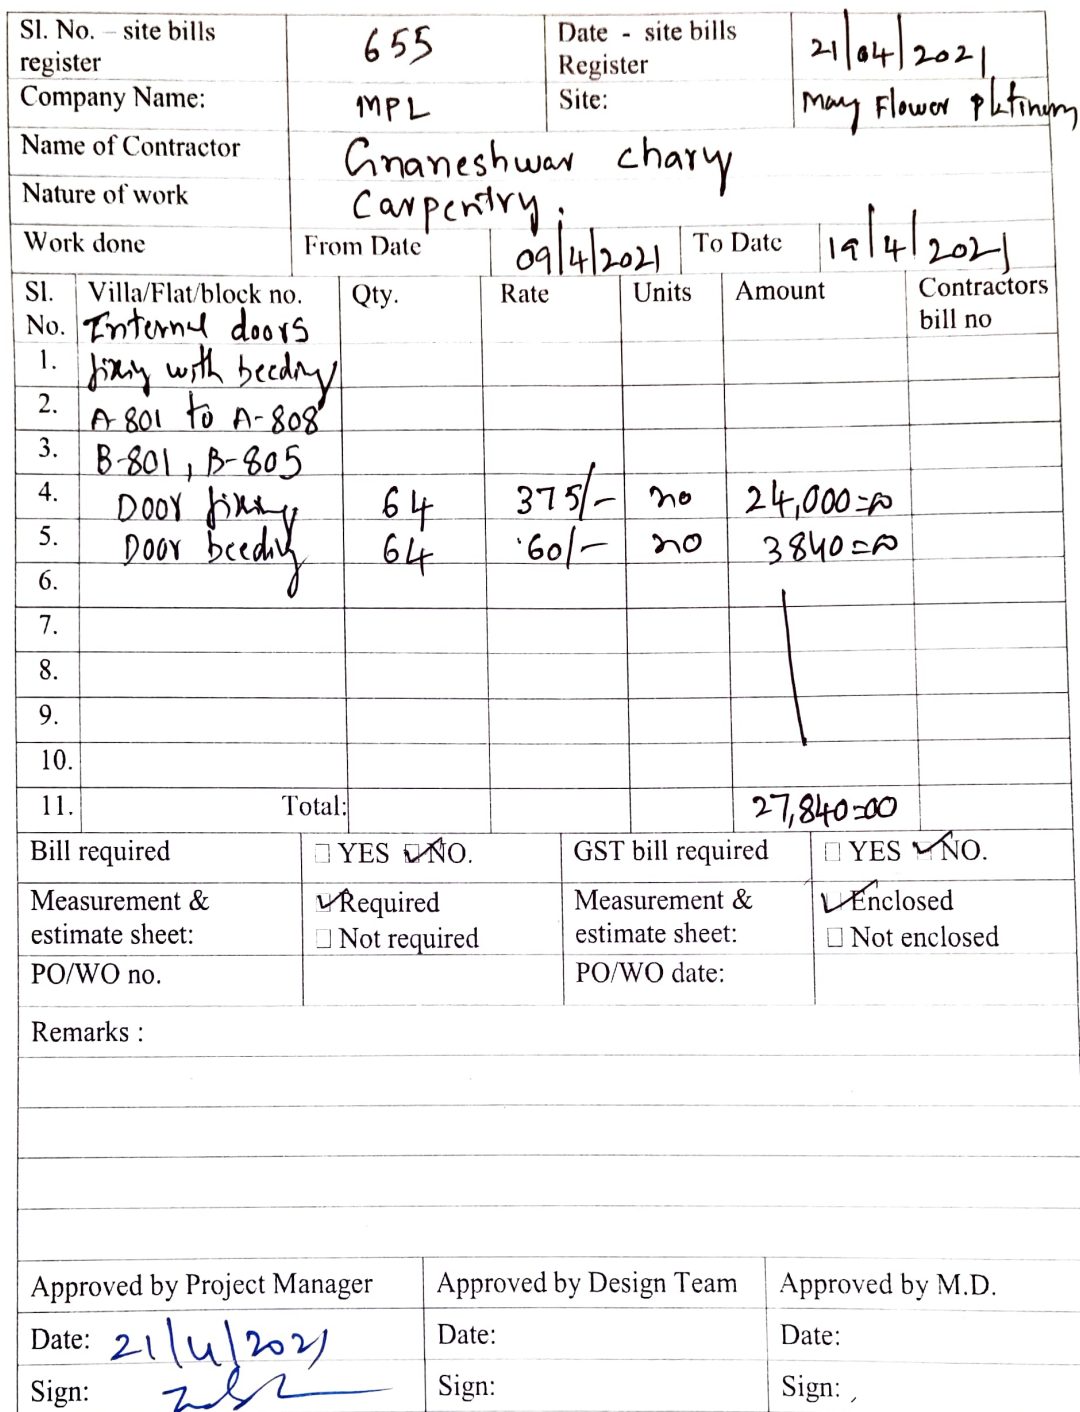 Sl. No. – site bills register 655 Date - site bills Register 21/04/2021
Company Name: MPL Site: May Flower Pltinum
Name of Contractor Gnaneshwar chary
Nature of work Carpentry.
Work done From Date 09/4/2021 To Date 19/4/2021
Sl. No. Villa/Flat/block no. Qty. Rate Units Amount Contractors bill no
Internal doors
1. fixing with beeding
2. A-801 to A-808
3. B-801, B-805
4. Door fixing 64 375/- no 24,000=00
5. Door beeding 64 60/- no 3840=00
6.
7.
8.
9.
10.
11. Total: 27,840=00
Bill required ☐ YES ☑ NO. GST bill required ☐ YES ☑ NO.
Measurement & estimate sheet: ☑ Required ☐ Not required Measurement & estimate sheet: ☑ Enclosed ☐ Not enclosed
PO/WO no. PO/WO date:
Remarks :
Approved by Project Manager Approved by Design Team Approved by M.D.
Date: 21/4/2021 Date: Date:
Sign: Sign: Sign: